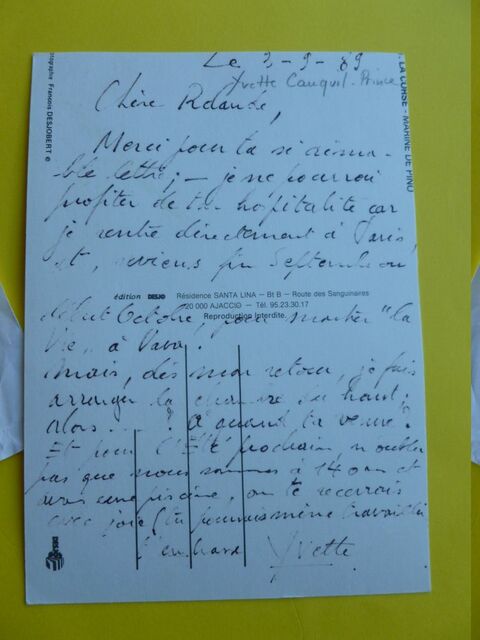 Le 3-9-89
Yvette Cauquil-Prince
Chère Rolande,
Merci pour ta si aima-
ble lettre; - je ne pourrai
profiter de ton hospitalité car
je rentre directement à Paris,
et, reviens fin Septembre ou
édition DESJO Résidence SANTA LINA — Bt B — Route des Sanguinaires
20 000 AJACCIO — Tél. 95.23.30.17
Reproduction Interdite.
début Octobre, pour montrer "la
Vie" à Vava.
Mais, dès mon retour, je fais
arranger la chambre du haut;
alors . . . ? à quand ta venue?
Et pour l'Eté prochain, n'oublie
pas que nous sommes à 14 km et
avons une piscine, on te recevrais
avec joie (tu pourrais même travailler
Yvette
Photographie François DESJOBERT ©
LA CORSE - MARINE DE PINO